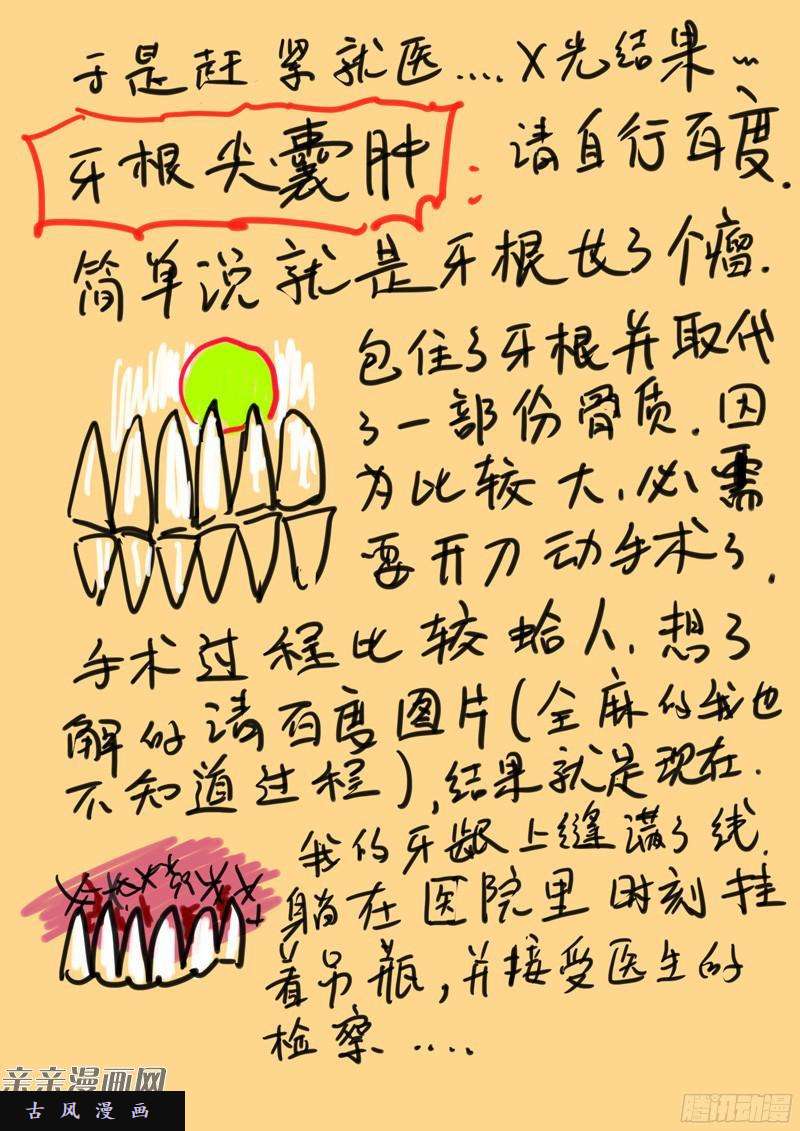 于是赶紧就医....X光结果...
牙根尖囊肿: 请自行百度.
简单说就是牙根长了个瘤.
包住了牙根并取代
了一部份骨质.因
为比较大,必需
要开刀动手术了.
手术过程比较蛤人.想了
解的请百度图片(全麻的我也
不知道过程),结果就是现在.
我的牙龈上缝满了线.
躺在医院里时刻挂
着吊瓶,并接受医生的
检察....
亲亲漫画网
古风漫画
腾讯动漫